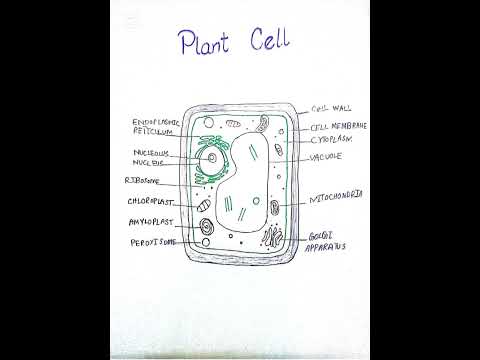 Plant Cell
ENDOPLASMIC
RETICULUM
NUCLEOUS
NUCLEUS
RIBOSOME
CHLOROPLAST
AMYLOPLAST
PEROXISOME
CELL WALL
CELL MEMBRANE
CYTOPLASM
VACUOLE
MITOCHONDRIA
GOLGI
APPARATUS